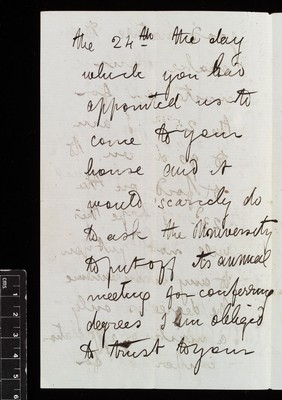 the 24th the day
which you had
appointed us to
come to your
house and it
would scarcely do
to ask the University
to put off its annual
meeting for conferring
degrees I am obliged
to trust to your